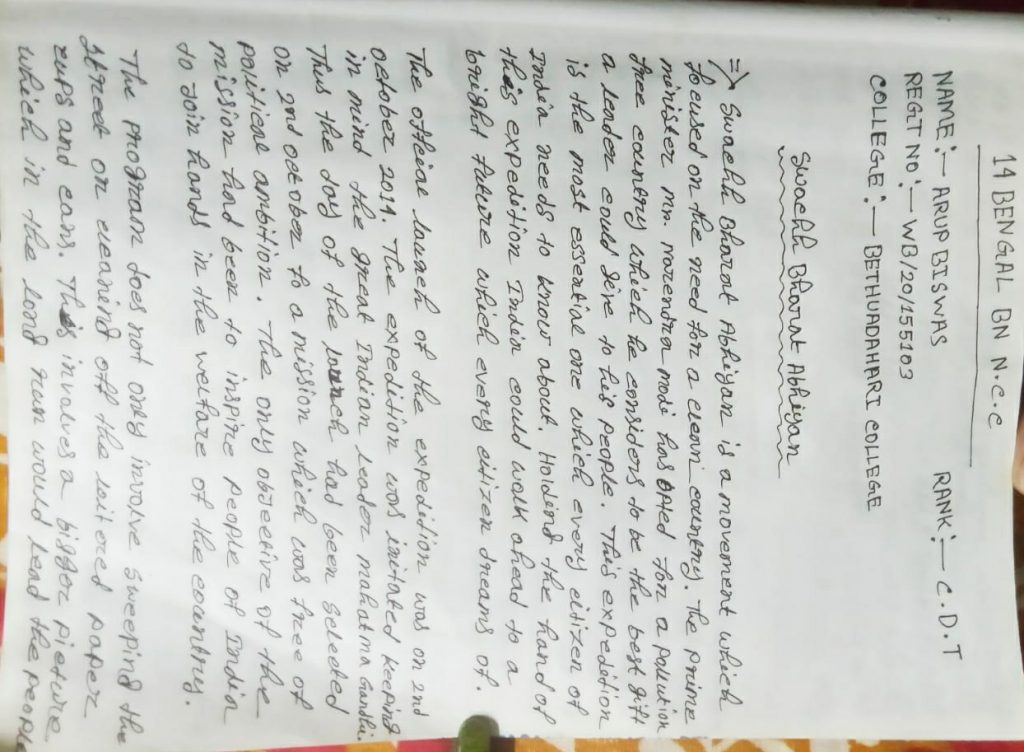 14 BENGAL BN N.C.C
NAME:- ARUP BISWAS RANK:- C.D.T
REGT NO:- WB/20/155103
COLLEGE:- BETHUADAHARI COLLEGE
Swachh Bharat Abhiyan
=> Swachh Bharat Abhiyan is a movement which
focused on the need for a clean country. The prime
minister mr. narendra modi has opted for a pollution
free country which he considers to be the best gift
a leader could give to his people. This expedition
is the most essential one which every citizen of
India needs to know about. Holding the hand of
this expedition India could walk ahead to a
bright future which every citizen dreams of.
The official launch of the expedition was on 2nd
october 2014. The expedition was initated keeping
in mind the great Indian leader mahatma Gandhi
Thus the day of the launch had been selected
on 2nd october to a mission which was free of
political ambition. The only objective of the
mission had been to inspire people of India
to Join hands in the welfare of the country.
The program does not only involve sweeping the
street or cleaning off the litered paper
cups and cans. This involves a bigger picture
which in the long run would lead the people